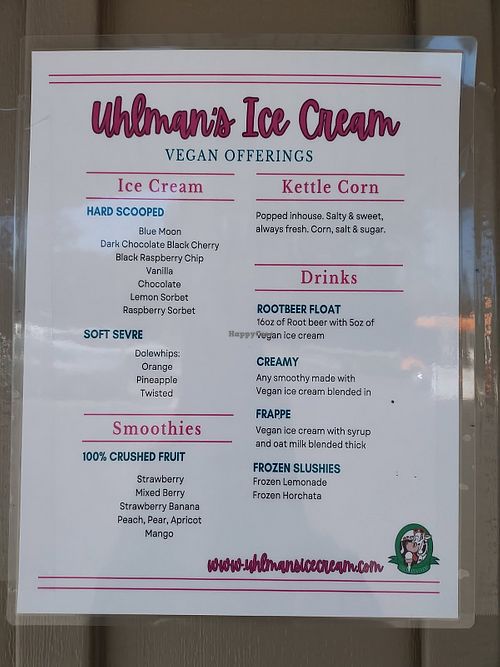 Uhlman's Ice Cream
VEGAN OFFERINGS
Ice Cream
HARD SCOOPED
Blue Moon
Dark Chocolate Black Cherry
Black Raspberry Chip
Vanilla
Chocolate
Lemon Sorbet
Raspberry Sorbet
SOFT SEVRE
Dolewhips:
Orange
Pineapple
Twisted
Smoothies
100% CRUSHED FRUIT
Strawberry
Mixed Berry
Strawberry Banana
Peach, Pear, Apricot
Mango
Kettle Corn
Popped inhouse. Salty & sweet,
always fresh. Corn, salt & sugar.
Drinks
ROOTBEER FLOAT
16oz of Root beer with 5oz of
Vegan ice cream
CREAMY
Any smoothy made with
Vegan ice cream blended in
FRAPPE
Vegan ice cream with syrup
and oat milk blended thick
FROZEN SLUSHIES
Frozen Lemonade
Frozen Horchata
www.uhlmansicecream.com